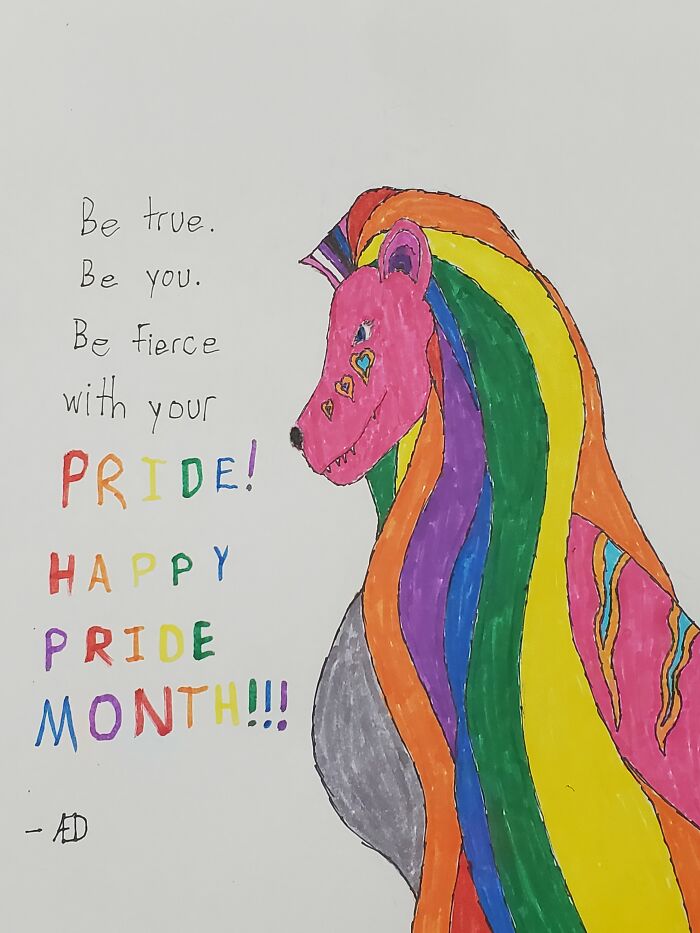 Be true.
Be you.
Be fierce
with your
PRIDE!
HAPPY
PRIDE
MONTH!!!
- ÆD